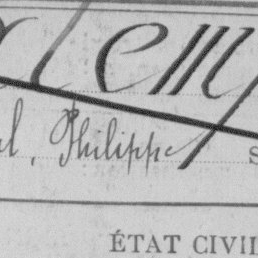 lem
l, Philippe S
ÉTAT CIVIL